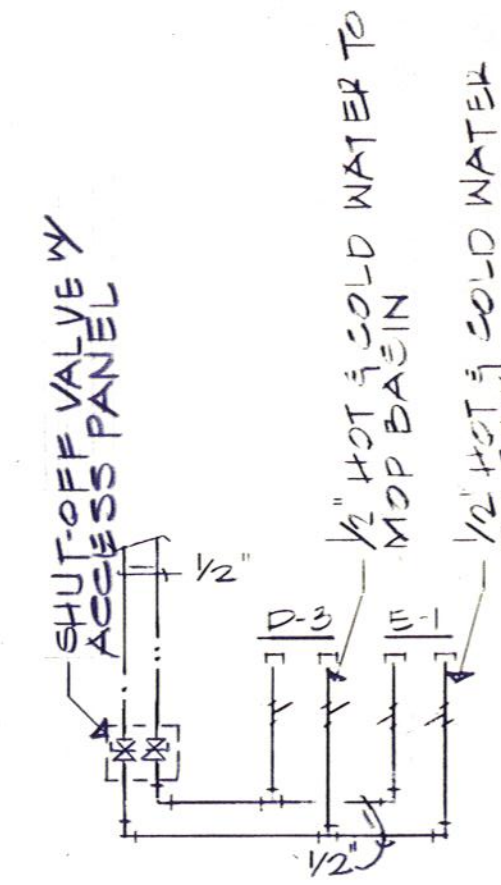 SHUT-OFF VALVE W/
ACCESS PANEL
1/2"
D-3
1/2" HOT & COLD WATER TO
MOP BASIN
E-1
1/2" HOT & COLD WATER
1/2"